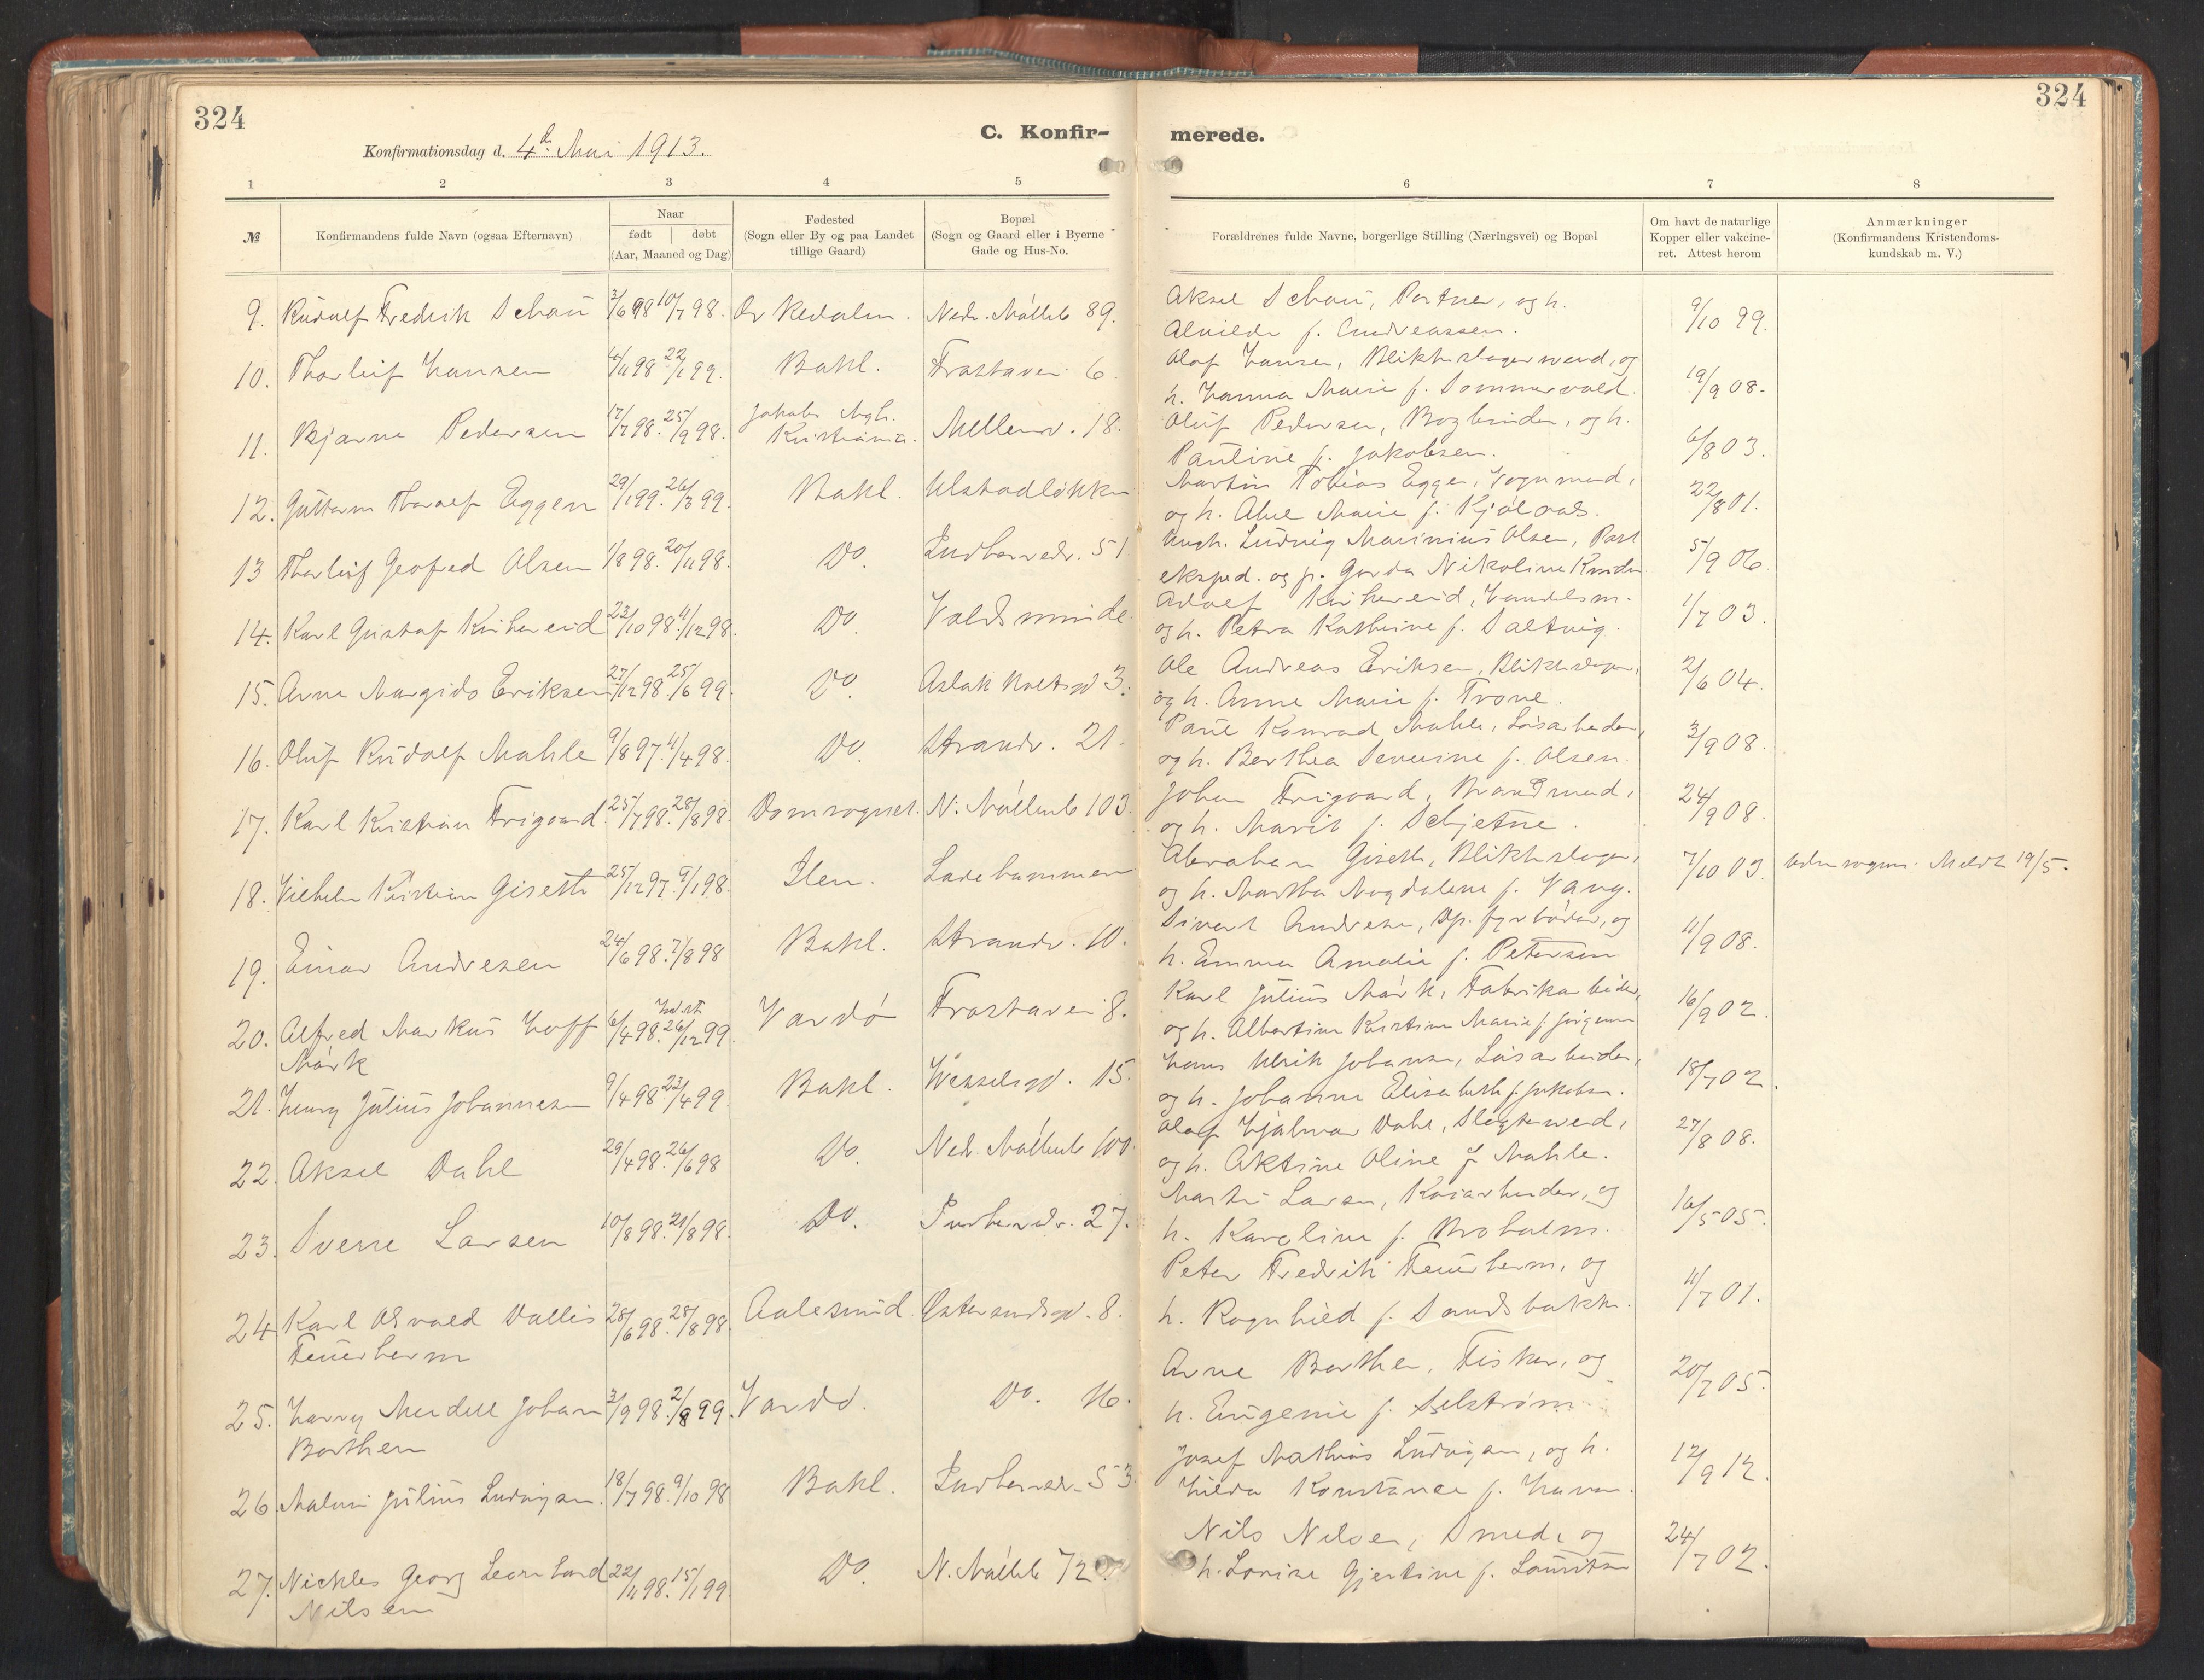 324
Konfirmationsdag d. 4de Mai 1913.
C. Konfir-
merede.
324
1 2 3 4 5 6 7 8
№
Konfirmandens fulde Navn (ogsaa Efternavn)
Naar
født | døbt
(Aar, Maaned og Dag)
Fødested
(Sogn eller By og paa Landet
tillige Gaard)
Bopæl
(Sogn og Gaard eller i Byerne
Gade og Hus-No.
Forældrenes fulde Navne, borgerlige Stilling (Næringsvei) og Bopæl
Om havt de naturlige
Kopper eller vakcine-
ret. Attest herom
Anmærkninger
(Konfirmandens Kristendoms-
kundskab m. V.)
9. Rudolf Fredrik Schau 3/6 98 10/7 98. Orkedalen. Nedr. Møllenb 89. Aksel Schau, Portner, og h. 9/10 99.
Alvilde f. Andreassen.
10. Thorleif Hansen 4/11 98 22/1 99. Bakl. Frostaven 6. Olaf Hansen, Blikkenslagersvend, og 19/9 08.
h. Hanna Marie f. Sommervold.
11. Bjarne Pedersen 17/7 98. 25/9 98. Jakobs Mgh. Kristiania. Mellemv. 18. Oluf Pedersen, Bogbinder, og h. 6/8 03.
Pauline f. Jakobsen.
12. Guttorm Thoralf Eggen 29/1 99. 26/3 99. Bakl. Ulstadløkken Martin Tobias Eggen, Vognmand, 22/8 01.
og h. Marie f. Kjølaas.
13 Thorleif Geofred Olsen 1/8 98. 20/11 98. Do. Indherredv. 51. Ungk. Ludvig Marinius Olsen, Post 5/9 06.
eksped. og p. Gerda Nikoline
14. Karl Gustaf Kirkereid 23/10 98 11/12 98. Do. Voldsminde Adolf Kirkereid, Handelsm. 1/7 03.
og h. Petra Kathrine f. Saltvig.
15. Arne Margido Eriksen 27/12 98. 25/6 99. Do. Aslak Boltsgd 3. Ole Andreas Eriksen, Blikkenslager, 2/6 04.
og h. Anne Marie f. Trøne.
16. Oluf Rudolf Mahle 9/8 97. 11/4 98. Do. Strandv. 21. Paul Konrad Mahle, Løsarbeider, 3/9 08.
og h. Berthea Severine f. Olsen.
17. Karl Kristian Frigaard. 25/7 98. 28/8 98. Domsognet. N. Møllenb 103 Johan Frigaard, Brandmand, 24/9 08.
og h. Marit f. Schjetne.
18. Vilhelm Kristian Giseth 25/12 97. 9/1 98. Ilen. Ladehammeren Abraham Giseth, Blikkenslager, 7/10 03. Udensogns. Meldt 19/5.
og h. Martha Magdalene f. Vang.
19. Einar Andresen 24/6 98. 7/8 98 Bakl. Strandv. 10. Sivert Andresen, Dp. fyrbøder, og 11/9 08.
h. Emma Amalie f. Petersen
20. Alfred Markus Hoff 6/4 98. 26/12 99. Vardø Frostaven 8. Karl Julius Mørk, Fabrikarbeider, 16/9 02.
Mørk og h. Albertine Kristine Marie f. Jørgensen
21. Henry Julius Johannesen 9/4 98 23/4 99. Bakl. Wesselsgd. 15. Hans Ulrik Johansen, Løsarbeider, 18/7 02.
og h. Johanne Elisabeth f. Jakobsen.
22. Aksel Dahl 29/4 98. 26/6 98 Do. Ned. Møllenb 100 Olaf Hjalmar Dahl, Slagtersvend, 27/8 08.
og h. Aktine Oline f. Mahle.
23. Sverre Larsen 10/8 98. 21/8 98. Do. Indherredv. 27. Martin Larsen, Kaiarbeider, og 16/5 05.
h. Karoline f. Broholm.
24. Karl Osvald Vallis 28/6 98. 28/8 98. Aalesund. Østersundsgd. 8. Peter Fredrik Feuerherm, og 11/7 01.
Feuerherm h. Ragnhild f. Sandsbakken.
25. Harry Meidell Johan 3/9 98. 2/8 99. Vardø. Do. 16. Arne Barthen, Fisker, og 20/7 05.
Barthen h. Eugenie f. Selstrøm.
26. Malvin Julius Ludvigsen. 18/7 98. 9/10 98 Bakl. Indherredv. 53. Josef Mathias Ludvigsen, og h. 12/9 12.
Hilda Konstance f.
27. Nickles Georg Leonhard 22/11 98. 15/1 99. Do. N. Møllenb 72. Nils Nilsen, Smed, og 24/7 02.
Nilsen h. Lovise Gjertine f. Lauritzen